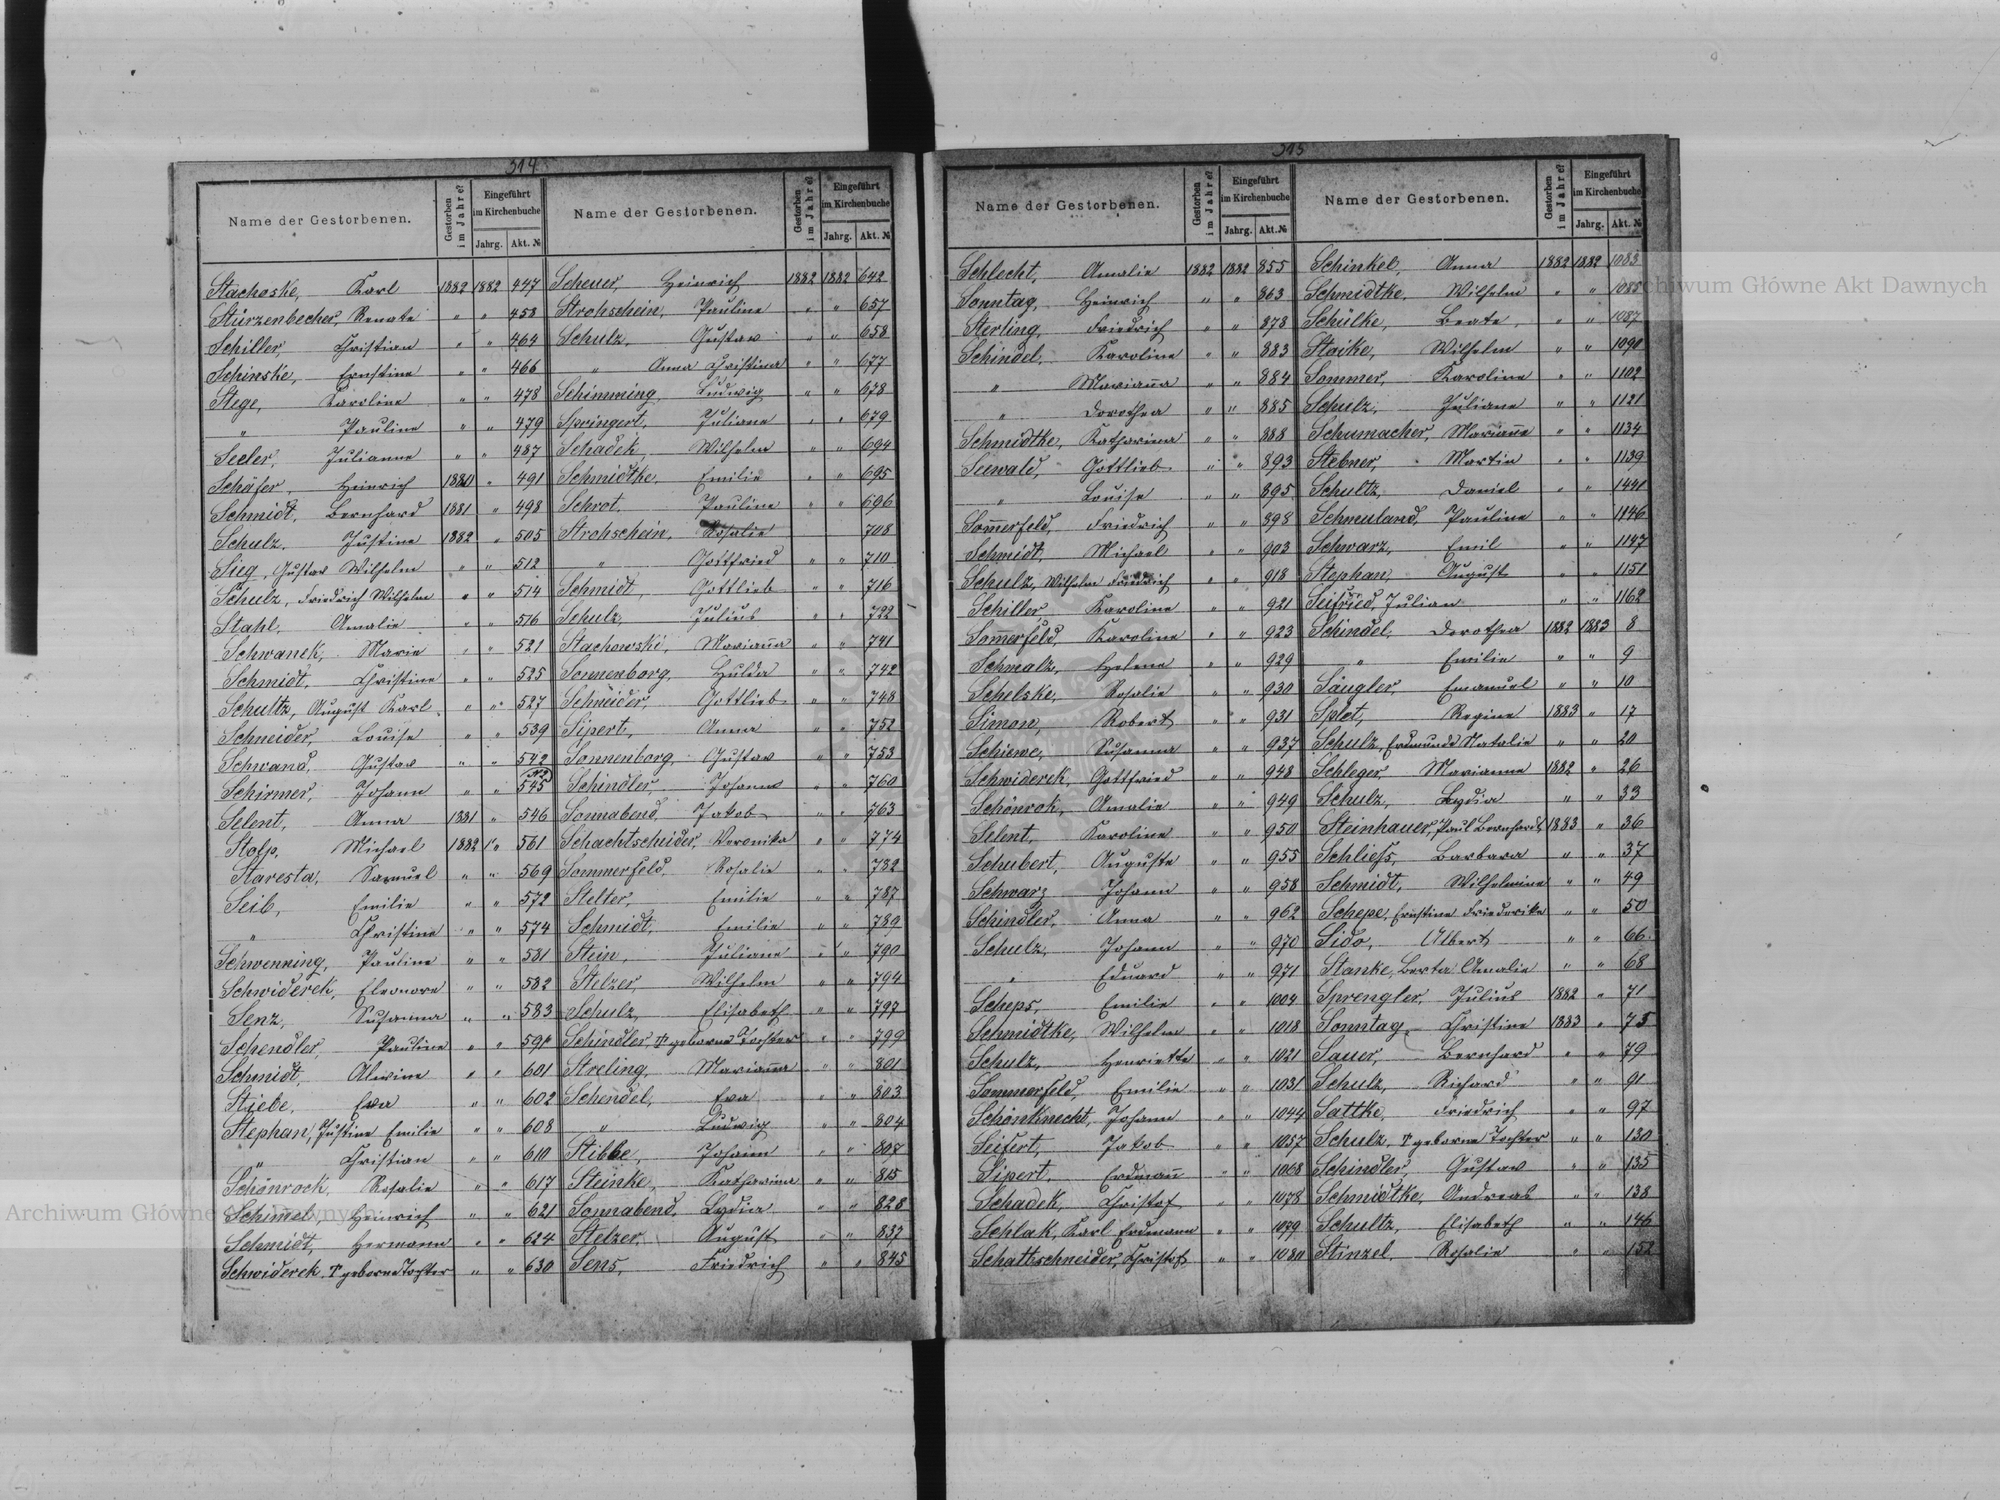 314
Name der Gestorbenen. Gestorben im Jahre? Eingeführt im Kirchenbuche Jahrg. Akt. № Name der Gestorbenen. Gestorben im Jahre? Eingeführt im Kirchenbuche Jahrg. Akt. №
Stachoske, Karl 1882 1882 447 Scheuer, Heinrich 1882 1882 642
Stürzenbecher, Renate " " 453 Strohschein, Pauline " " 657
Schiller, Christian " " 464 Schulz, Gustav " " 658
Schinske, Ernstine " " 466 " Anna Christina " " 677
Stege, Karoline " " 478 Schimming, Ludwig " " 678
" Pauline " " 479 Springert, Juliane " " 679
Seeler, Julianne " " 487 Schadek, Wilhelm " " 694
Schäfer, Heinrich 1880 " 491 Schmidtke, Emilie " " 695
Schmidt, Bernhard 1881 " 498 Schrot, Pauline " " 696
Schulz, Justine 1882 " 505 Strohschein, Rosalie 708
Sieg, Gustav Wilhelm " " 512 " Gottfried " " 710
Schulz, Friedrich Wilhelm " " 514 Schmidt, Gottlieb " " 716
Stahl, Amalie " " 516 Schulz, Julius " " 722
Schwanek, Marie " " 521 Stachowski, Marianna " " 741
Schmidt, Christine " " 525 Sonnenborg, Hulda " " 742
Schultz, August Karl " " 527 Schneider, Gottlieb " " 748
Schneider, Louise " " 539 Sipert, Anna " " 752
Schwand, Gustav " " 542 Sonnenborg, Gustav " " 753
Schirmer, Johann " " 545 Schindler, Johanna " " 760
Selent, Anna 1881 " 546 Sonnabend, Jakob " " 763
Stolp, Michael 1882 " 561 Schachtschneider, Veronika " " 774
Staresta, Samuel " " 569 Sommerfeld, Rosalie " " 782
Seib, Emilie " " 572 Stelter, Emilie " " 787
" Christine " " 574 Schmidt, Emilie " " 789
Schwenning, Pauline " " 581 Stein, Juliane " " 790
Schwiderek, Eleonore " " 582 Stelzer, Wilhelm " " 794
Senz, Susanna " " 583 Schulz, Elisabeth " " 797
Schendler, Pauline " " 591 Schindler, T geborne Tochter " " 799
Schmidt, Alwine " " 601 Streling, Marianna " " 801
Stiebe, Eva " " 602 Schendel, Eva " " 803
Stephan, Justine Emilie " " 608 " Ludwig " " 804
" Christian " " 610 Stibbe, Johann " " 807
Schönrock, Rosalie " " 617 Steinke, Katharina " " 815
Schimel, Heinrich " " 621 Sonnabend, Lydia " " 828
Schmidt, Hermann " " 624 Stelzer, August " " 837
Schwiderek, T geborne Tochter " " 630 Sens, Friedrich " " 845
315
Name der Gestorbenen. Gestorben im Jahre? Eingeführt im Kirchenbuche Jahrg. Akt. № Name der Gestorbenen. Gestorben im Jahre? Eingeführt im Kirchenbuche Jahrg. Akt. №
Schlecht, Amalie 1882 1882 855 Schinkel, Anna 1882 1882 1083
Sonntag, Heinrich " " 863 Schmidtke, Wilhelm " " 1085
Sterling, Friedrich " " 878 Schülke, Beate " " 1087
Schindel, Karoline " " 883 Staike, Wilhelm " " 1090
" Marianna " " 884 Sommer, Karoline " " 1102
" Dorothea " " 885 Schulz, Juliane " " 1121
Schmidtke, Katharina " " 888 Schumacher, Marianne " " 1134
Seewald, Gottlieb " " 893 Stebner, Martin " " 1139
" Louise " " 895 Schultz, Daniel " " 1141
Sommerfeld, Friedrich " " 898 Schmuland, Pauline " " 1146
Schmidt, Michael " " 903 Schwarz, Emil " " 1147
Schulz, Wilhelm Friedrich " " 918 Stephan, August " " 1151
Schiller, Karoline " " 921 Seifried, Julian " " 1162
Sommerfeld, Karoline " " 923 Schindel, Dorothea 1882 1883 8
Schmalz, Helene " " 929 " Emilie " " 9
Schelske, Rosalie " " 930 Säugler, Emanuel " " 10
Simon, Robert " " 931 Splet, Regine 1883 " 17
Schiewe, Susanna " " 937 Schulz, Erdmunde Natalie " " 20
Schwiderek, Gottfried " " 948 Schleger, Marianne 1882 " 26
Schönrok, Amalie " " 949 Schulz, Lydia " " 33
Selent, Karoline " " 950 Steinhauer, Paul Bernhard 1883 " 36
Schubert, Auguste " " 955 Schliess, Barbara " " 37
Schwarz, Johann " " 958 Schmidt, Wilhelmine " " 49
Schindler, Anna " " 962 Schepe, Ernstine Friederike " " 50
Schulz, Johann " " 970 Sido, Albert " " 66
" Eduard " " 971 Stanke, Berta Amalie " " 68
Scheps, Emilie " " 1004 Sprengler, Julius 1882 " 71
Schmidtke, Wilhelm " " 1018 Sonntag, Christine 1883 " 75
Schulz, Henriette " " 1021 Sauer, Bernhard " " 79
Sommerfeld, Emilie " " 1031 Schulz, Richard " " 91
Schönknecht, Johann " " 1044 Sattke, Friedrich " " 97
Seifert, Jakob " " 1057 Schulz, T geborne Tochter " " 130
Sipert, Erdmann " " 1068 Schindler, Gustav " " 135
Schadek, Christof " " 1078 Schmidtke, Andreas " " 138
Schlak, Karl Erdmann " " 1079 Schultz, Elisabeth " " 146
Schattschneider, Christof " " 1080 Stinzel, Rosalie " " 152
Archiwum Główne Akt Dawnych
Archiwum Główne Akt Dawnych